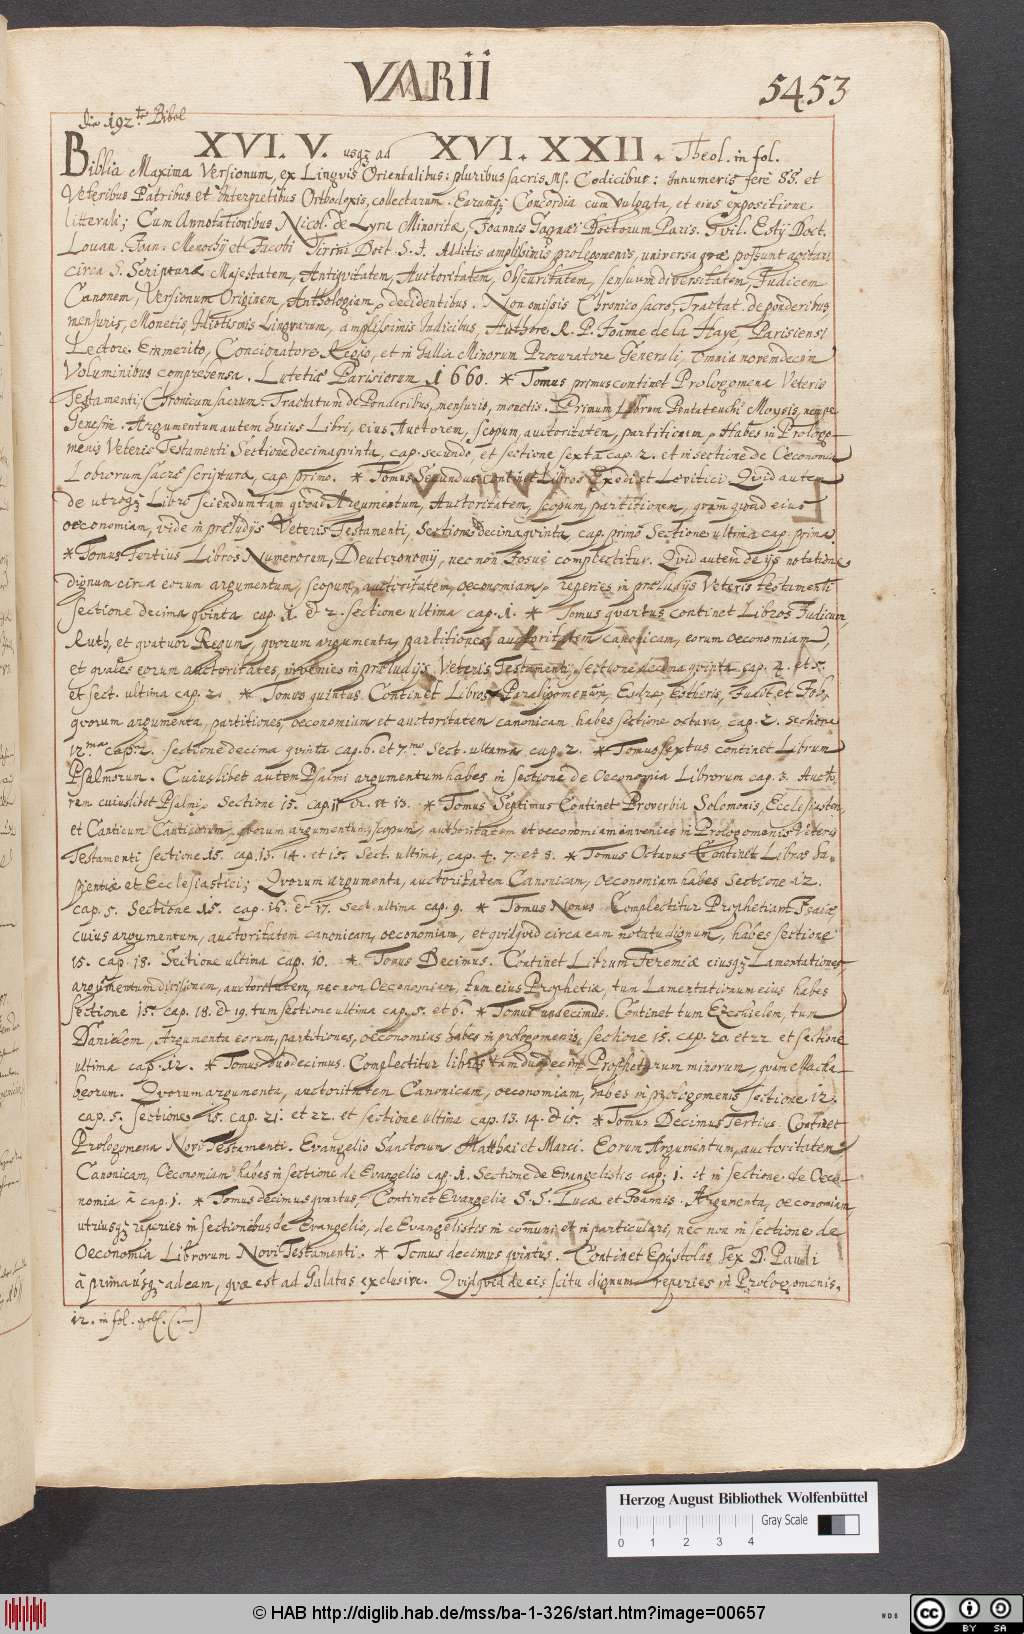 VARII
5453
die 192te Bibel
XVI. V. usqz ad XVI. XXII. Theol. in fol.
Biblia Maxima Versionum, ex Linguis Orientalibus: pluribus sacris Ms. Codicibus: Innumeris fere SS. et
Veteribus Patribus et Interpretibus Orthodoxis, collectarum. Earumqz Concordia cum vulgata, et eius expositione
litterali; Cum Annotationibus Nicol. de Lyra Minoritæ, Joannis Gagnæi Doctorum Paris. Guil. Estij Doct.
Lovan. Joan: Menochij et Jacobi Tirini Doct. S. J. Additis amplissimis prolegomenis, universa quæ possunt agitari
circa S. Scripturæ Majestatem, Antiquitatem, Auctoritatem, Obscuritatem, sensuum diversitatem, Judicem
Canonem, Versionum Originem, Anthologiam, decidentibus. Non omissis Chronico sacro, Tractat. de ponderibus
mensuris, Monetis, Idiotismis Linguarum, amplissimis Indicibus, Authore R. P. Joanne de la Haye, Parisiensi
Lectore Emmerito, Concionatore Regio, et in Gallia Minorum Procuratore Generali, Omnia novemdecim
Voluminibus comprehensa. Lutetiæ Parisiorum 1660. * Tomus primus continet Prologomena Veteris
Testamenti; Chronicum sacrum: Tractatum de Ponderibus, mensuris, monetis. Primum Librum Pentateuchi Moysis, nempe
Genesin. Argumentum autem huius Libri, eius Auctorem, scopum, auctoritatem, partitionem, Habes in Prologo-
menis Veteris Testamenti Sectione decima quinta, cap. secundo, et sectione sexta cap. 2. et in sectione de Oeconomia
Lobrorum sacræ scripturæ, cap. primo. * Tomus Secundus continet Libros Exodi et Levitici. Quid autem
de utroqz Libro sciendum tam quoad Argumentum, Auctoritatem, scopum, partitionem, quam quoad eius
oeconomiam, vide in præludijs Veteris Testamenti, Sectione decima quinta, cap. primo Sectione ultima cap. prima.
* Tomus Tertius Libros Numerorum, Deuteronomij, nec non Josue complectitur. Quid autem de ijs notatione
dignum circa eorum argumentum, scopum, auctoritatem, oeconomiam, reperies in præludijs Veteris testamenti
sectione decima quinta cap. 1. & 2. sectione ultima cap. 1. * Tomus quartus continet Libros Judicum,
Ruth, et quatuor Regum, quorum argumenta, partitiones, auctoritatem canonicam, eorum oeconomiam,
et quales eorum auctoritates, invenies in præludijs, Veteris Testamenti, sectione decima quinta cap. 4. et 5.
et sect. ultima cap. 2. * Tomus quintus Continet Libros Paralipomenon, Esdræ, Estheris, Judit, et Job,
quorum argumenta, partitiones, oeconomium et auctoritatem canonicam habes sectione octava, cap. 2. sectiona
12ma cap. 2. sectione decima quinta cap. 6. et 7mo Sect. ultama cap. 2. * Tomus sextus continet Librum
Psalmorum. Cuiuslibet autem Psalmi argumentum habes in sectione de Oeconomia Librorum cap. 3. Aucto-
rem cuiuslibet Psalmi, Sectione 15. cap. 11. 12. et 13. * Tomus Septimus Continet Proverbia Solomonis, Ecclesiasten,
et Canticum Canticorum, quorum argumentum, scopum, authoritatem et oeconomiam invenies in Prologomenis Veteris
Testamenti sectione 15. cap. 13. 14. et 15. Sect. ultima, cap. 4. 7. et 8. * Tomus Octavus Continet Libros Sa-
pientiæ et Ecclesiastici; Quorum argumenta, auctoritatem Canonicam, oeconomiam habes Sectione 12.
cap. 5. Sectione 15. cap. 16. & 17. sect. ultima cap. 9. * Tomus Nonus Complectitur Prophetiam Isaiæ,
cuius argumentum, auctoritatem canonicam, oeconomiam, et quidquid circa eam notatu dignum, habes sectione
15. cap. 18. Sectione ultima cap. 10. * Tomus Decimus. Continet Librum Jeremiæ eiusqz Lamentationes,
argumentum divisionem, auctoritatem, nec non oeconomiam, tum eius Prophetiæ, tum Lamentationum eius habes
sectione 15. cap. 18. & 19. tum sectione ultima cap. 5. et 6. * Tomus undecimus. Continet tum Ezechielem, tum
Danielem, Argumenta eorum, partitiones, oeconomias habes in prologomenis, sectione 15. cap. 20. et 22. et sectione
ultima cap. 12. * Tomus duodecimus. Complectitur libros tam duodecim Prophetarum minorum, quam Macha-
beorum. Quorum argumenta, auctoritatem Canonicam, oeconomiam, habes in prologomenis sectione 12.
cap. 5. sectione 15. cap. 21. et 22. et sectione ultima cap. 13. 14. & 15. * Tomus Decimus Tertius. Continet
Prologomena Novi Testamenti. Evangelio Sanctorum Matthæi et Marci. Eorum Argumentum, auctoritatem
Canonicam, Oeconomiam habes in sectione de Evangelio cap. 1. Sectione de Evangelistis cap. 1. et in sectione de Oeco-
nomia à cap. 1. * Tomus decimus quartus, Continet Evangelia S. S. Lucæ et Joannis. Argumenta, oeconomiam
utriusqz reperies in sectionibus de Evangelio, de Evangelistis in comuni et in particulari, nec non in sectione de
Oeconomia Librorum Novi Testamenti. * Tomus decimus quintus. Continet Epistolas sex D. Pauli
à prima usqz ad eam, quæ est ad Galatas exclusive. Quidquid de eis scitu dignum reperies in Prologomenis.
12. in fol.
Herzog August Bibliothek Wolfenbüttel
Gray Scale
0 1 2 3 4
© HAB http://diglib.hab.de/mss/ba-1-326/start.htm?image=00657
WDB
cc BY SA